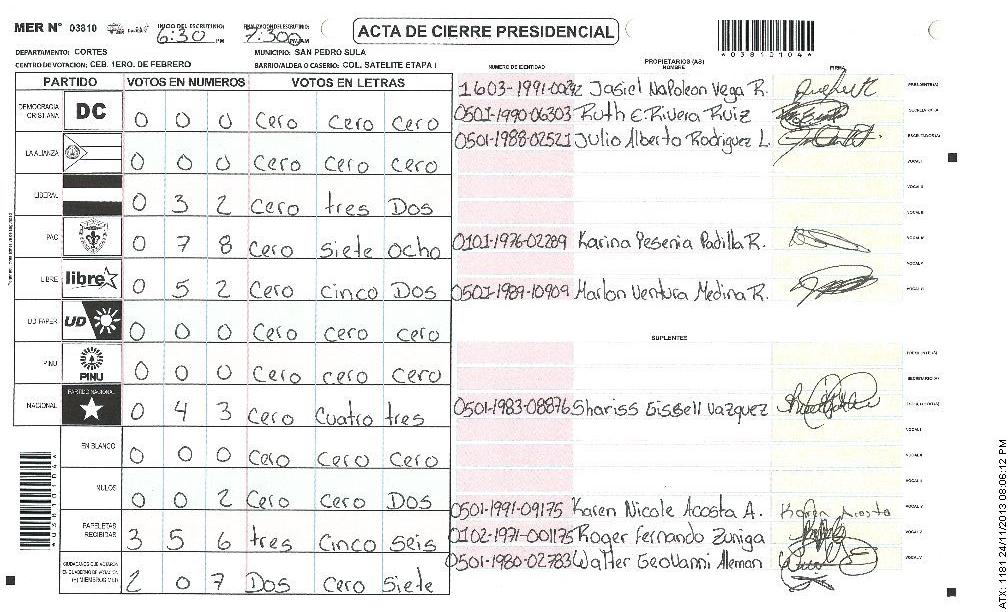 MER N° 03810 INICIO DEL ESCRUTINIO: 6:30 PM FINALIZACION DEL ESCRUTINIO: 7:300 PM/AM
ACTA DE CIERRE PRESIDENCIAL
*03810104*
DEPARTAMENTO: CORTES MUNICIPIO: SAN PEDRO SULA
CENTRO DE VOTACION: CEB. 1ERO. DE FEBRERO BARRIO/ALDEA O CASERIO: COL. SATELITE ETAPA I
PARTIDO VOTOS EN NUMEROS VOTOS EN LETRAS
DEMOCRACIA CRISTIANA DC 0 0 0 Cero Cero Cero
LA ALIANZA 0 0 0 Cero Cero Cero
LIBERAL 0 3 2 Cero tres Dos
PAC 0 7 8 Cero Siete Ocho
LIBRE libre 0 5 2 Cero Cinco Dos
UD FAPER UD 0 0 0 Cero Cero cero
PINU PINU 0 0 0 Cero cero cero
NACIONAL PARTIDO NACIONAL 0 4 3 Cero Cuatro tres
EN BLANCO 0 0 0 Cero Cero Cero
NULOS 0 0 2 Cero Cero Dos
PAPELETAS RECIBIDAS 3 5 6 tres Cinco Seis
2 0 7 Dos Cero Siete
PROPIETARIOS (AS)
NUMERO DE IDENTIDAD NOMBRE FIRMA
Jasiel Napoleon Vega R. PRESIDENTE(A)
0501-1990-06303 Ruth E. Rivera Ruiz
0501-1988-02521 Julio Alberto Rodriguez L.
0101-1976-02289 Karina Yesenia Padilla R.
0501-1989-10909 Marlon Ventura Medina R.
SUPLENTES
0501-1983-08876 Shariss Gissell Vazquez
0501-1991-09175 Karen Nicole Acosta A. Karen Acosta
0102-1971-001175 Roger Fernando Zuniga
0501-1980-02783 Walter Geovanni Aleman
*03810104*
ATX: 1181 24/11/2013 08:06:12 PM